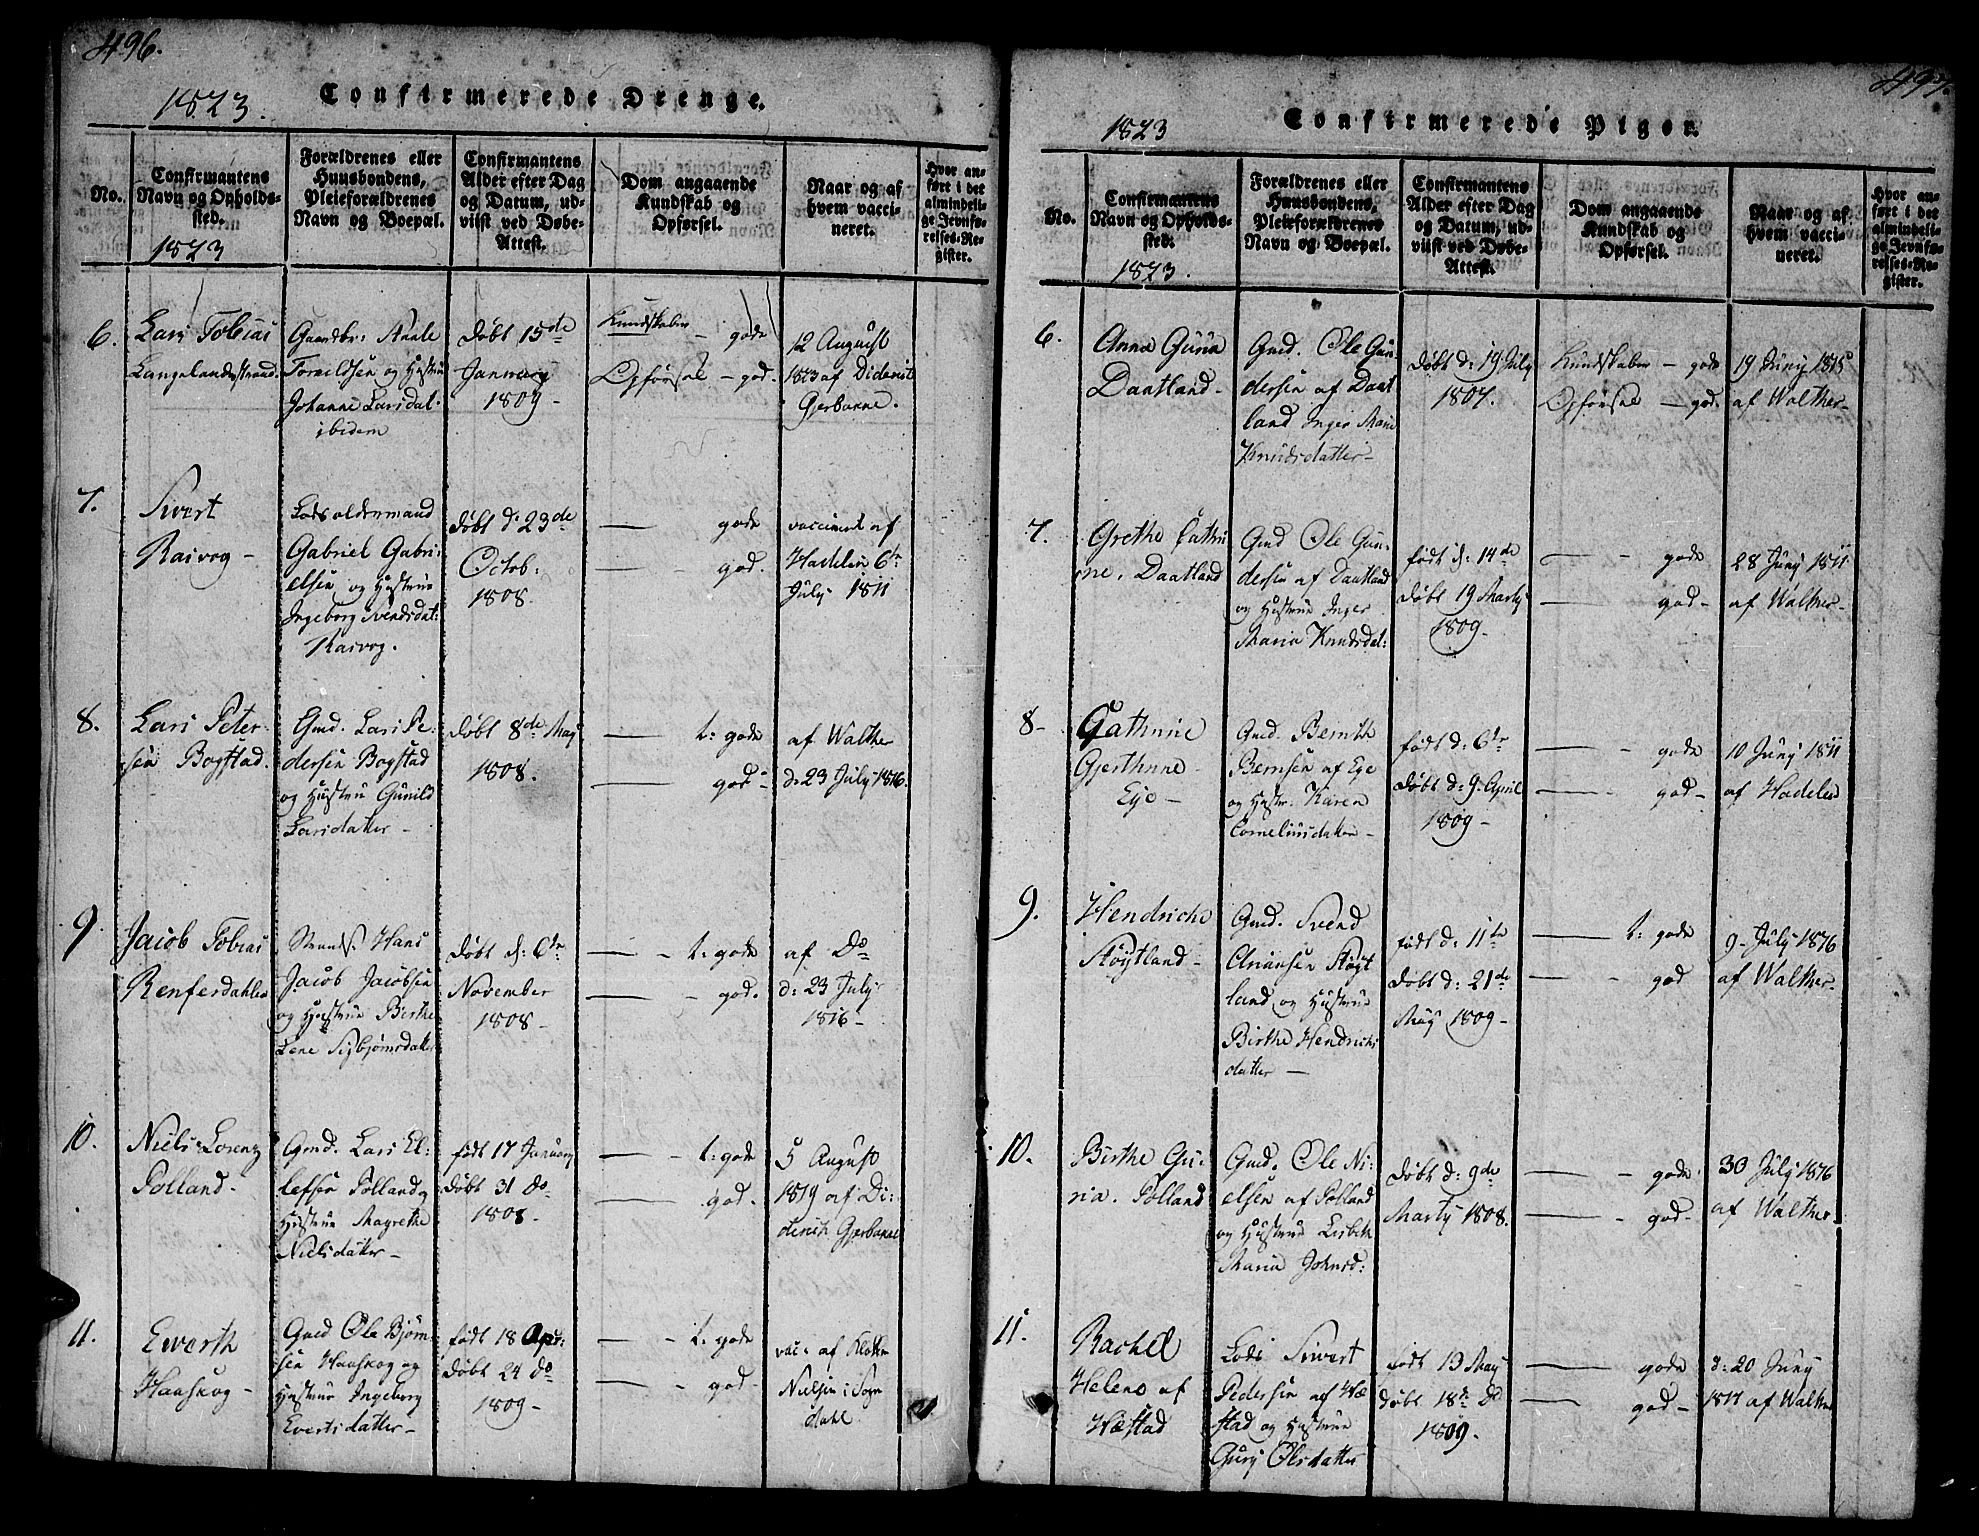 496.
1823.
Confirmerede Drenge.
No.
Confirmantens
Navn og Opholds-
sted.
1823
Forældrenes eller
Huusbondens,
Pleieforældrenes
Navn og Boepæl.
Confirmantens
Alder efter Dag
og Datum, ud-
viist ved Døbe-
Attest.
Dom angaaende
Kundskab og
Opførsel.
Naar og af
hvem vacci-
neret.
Hvor an-
ført i det
almindeli-
ge Jevnfø-
relses-Re-
gister.
6.
Lars Tobias
Langelandsstrand.
og Hustrue
Johanne Larsdat.
ibidem
Døbt 15de
January
1809
Kundskaber - gode
Opførsel - god.
12 August
1823 af Diderich
Gjerbanne.
7.
Sivert
Rasvog -
Lods oldermand
Gabriel Gabri-
elsen og Hustrue
Ingeborg Svendsdat:
Rasvog.
Døbt d: 23de
Octob:
1808.
— gode
— - god.
vaccineret af
Hadeln 6te
July 1811
8.
Lars Peter-
sen Bogstad.
Gmd. Lars Pe-
dersen Bogstad
og Hustru Gunild
Larsdatter -
Døbt 8de May
1808.
— t: gode
— god -
af Walther
d: 23 July 1816.
9.
Jacob Tobias
Renferdahlen
Hans
Jacob Jacobsen
og Hustrue Birthe
Lene Sigbjørnsdatter
Døbt d: 6te
November
1808 -
— - t: gode
— - god.
af Do
d: 23 July
1816 -
10.
Niels Lorenz
Pølland -
Gmd. Lars El-
lefsen Pølland og
Hustrue Magrethe
Nielsdatter -
født 17 January
Døbt 31 Do
1808 -
— - t: gode
— god -
5 August
1819 af Di-
derich Gjerbanne
11.
Ewerth
Haaskog -
Gmd Ole Bjørn-
sen Haaskog og
Hustrue Ingeborg
Evertsdatter -
født 18 Apr:
Døbt 24 do
1809 -
— - t: gode
— - god -
vac: af
Nielsen i Sogn
dahl.
497.
1823
Confirmerede Piger.
No.
Confirmantens
Navn og Opholds-
sted.
1823.
Forældrenes eller
Huusbondens,
Pleieforældrenes
Navn og Boepæl.
Confirmantens
Alder efter Dag
og Datum, ud-
viist ved Døbe-
Attest.
Dom angaaende
Kundskab og
Opførsel.
Naar og af
hvem vacci-
neret.
Hvor an-
ført i det
almindeli-
ge Jevnfø-
relses-Re-
gister.
6.
Anna Guna
Daatland -
Gmd. Ole Gun-
dersen af Daat
land Inger Marie
Knudsdatter -
Døbt d: 19 July
1807.
Kundskaber - gode
Opførsel - god.
19 Juny 1815
af Walther -
7.
Grethe Cathri
ne. Daatland
Gmd Ole Gun-
dersen af Daatland
og Hustrue Inger
Maria Knudsdat:
født d: 14de
Døbt 19 Marty
1809 -
— - gode
— god -
28 Juny 1811
af Walther -
8 -
Cathrine
Gjerthrine
Eye -
Gmd. Bernth
Bernsen af Eye
og Hustr. Karen
Corneliusdatter -
født d: 6te
Døbt d: 9. April
1809 -
— - gode
— god -
10 Juny 1811
af Hadeln
9.
Hendriche
Støytland -
Gmd. Svend
Arionsen Støyt
land og Hustrue
Birthe Hendrichs
datter -
født d: 11te
Døbt d: 21de
May 1809 -
— t: gode
— god
9 - July 1816
af Walther -
10.
Birthe Gu-
ria. Pølland
Gmd. Ole Ni-
elsen af Pølland
og Hustrue Lisbeth
Maria Johnsd:
Døbt d: 9de
Marty 1808.
— - gode
— - god -
30 July 1816
af Walther
11.
Rachel
Helene af
Wæstad
Lods Sivert
Pedersen af Wæ
stad og Hustrue
Gury Olsdatter
født 13 May
Døbt 18de Do
1809.
— gode
— god -
d: 20 Juny
1811 af Walther